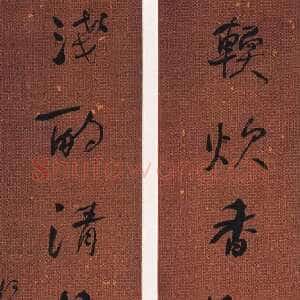 輭炊香
淺酌清